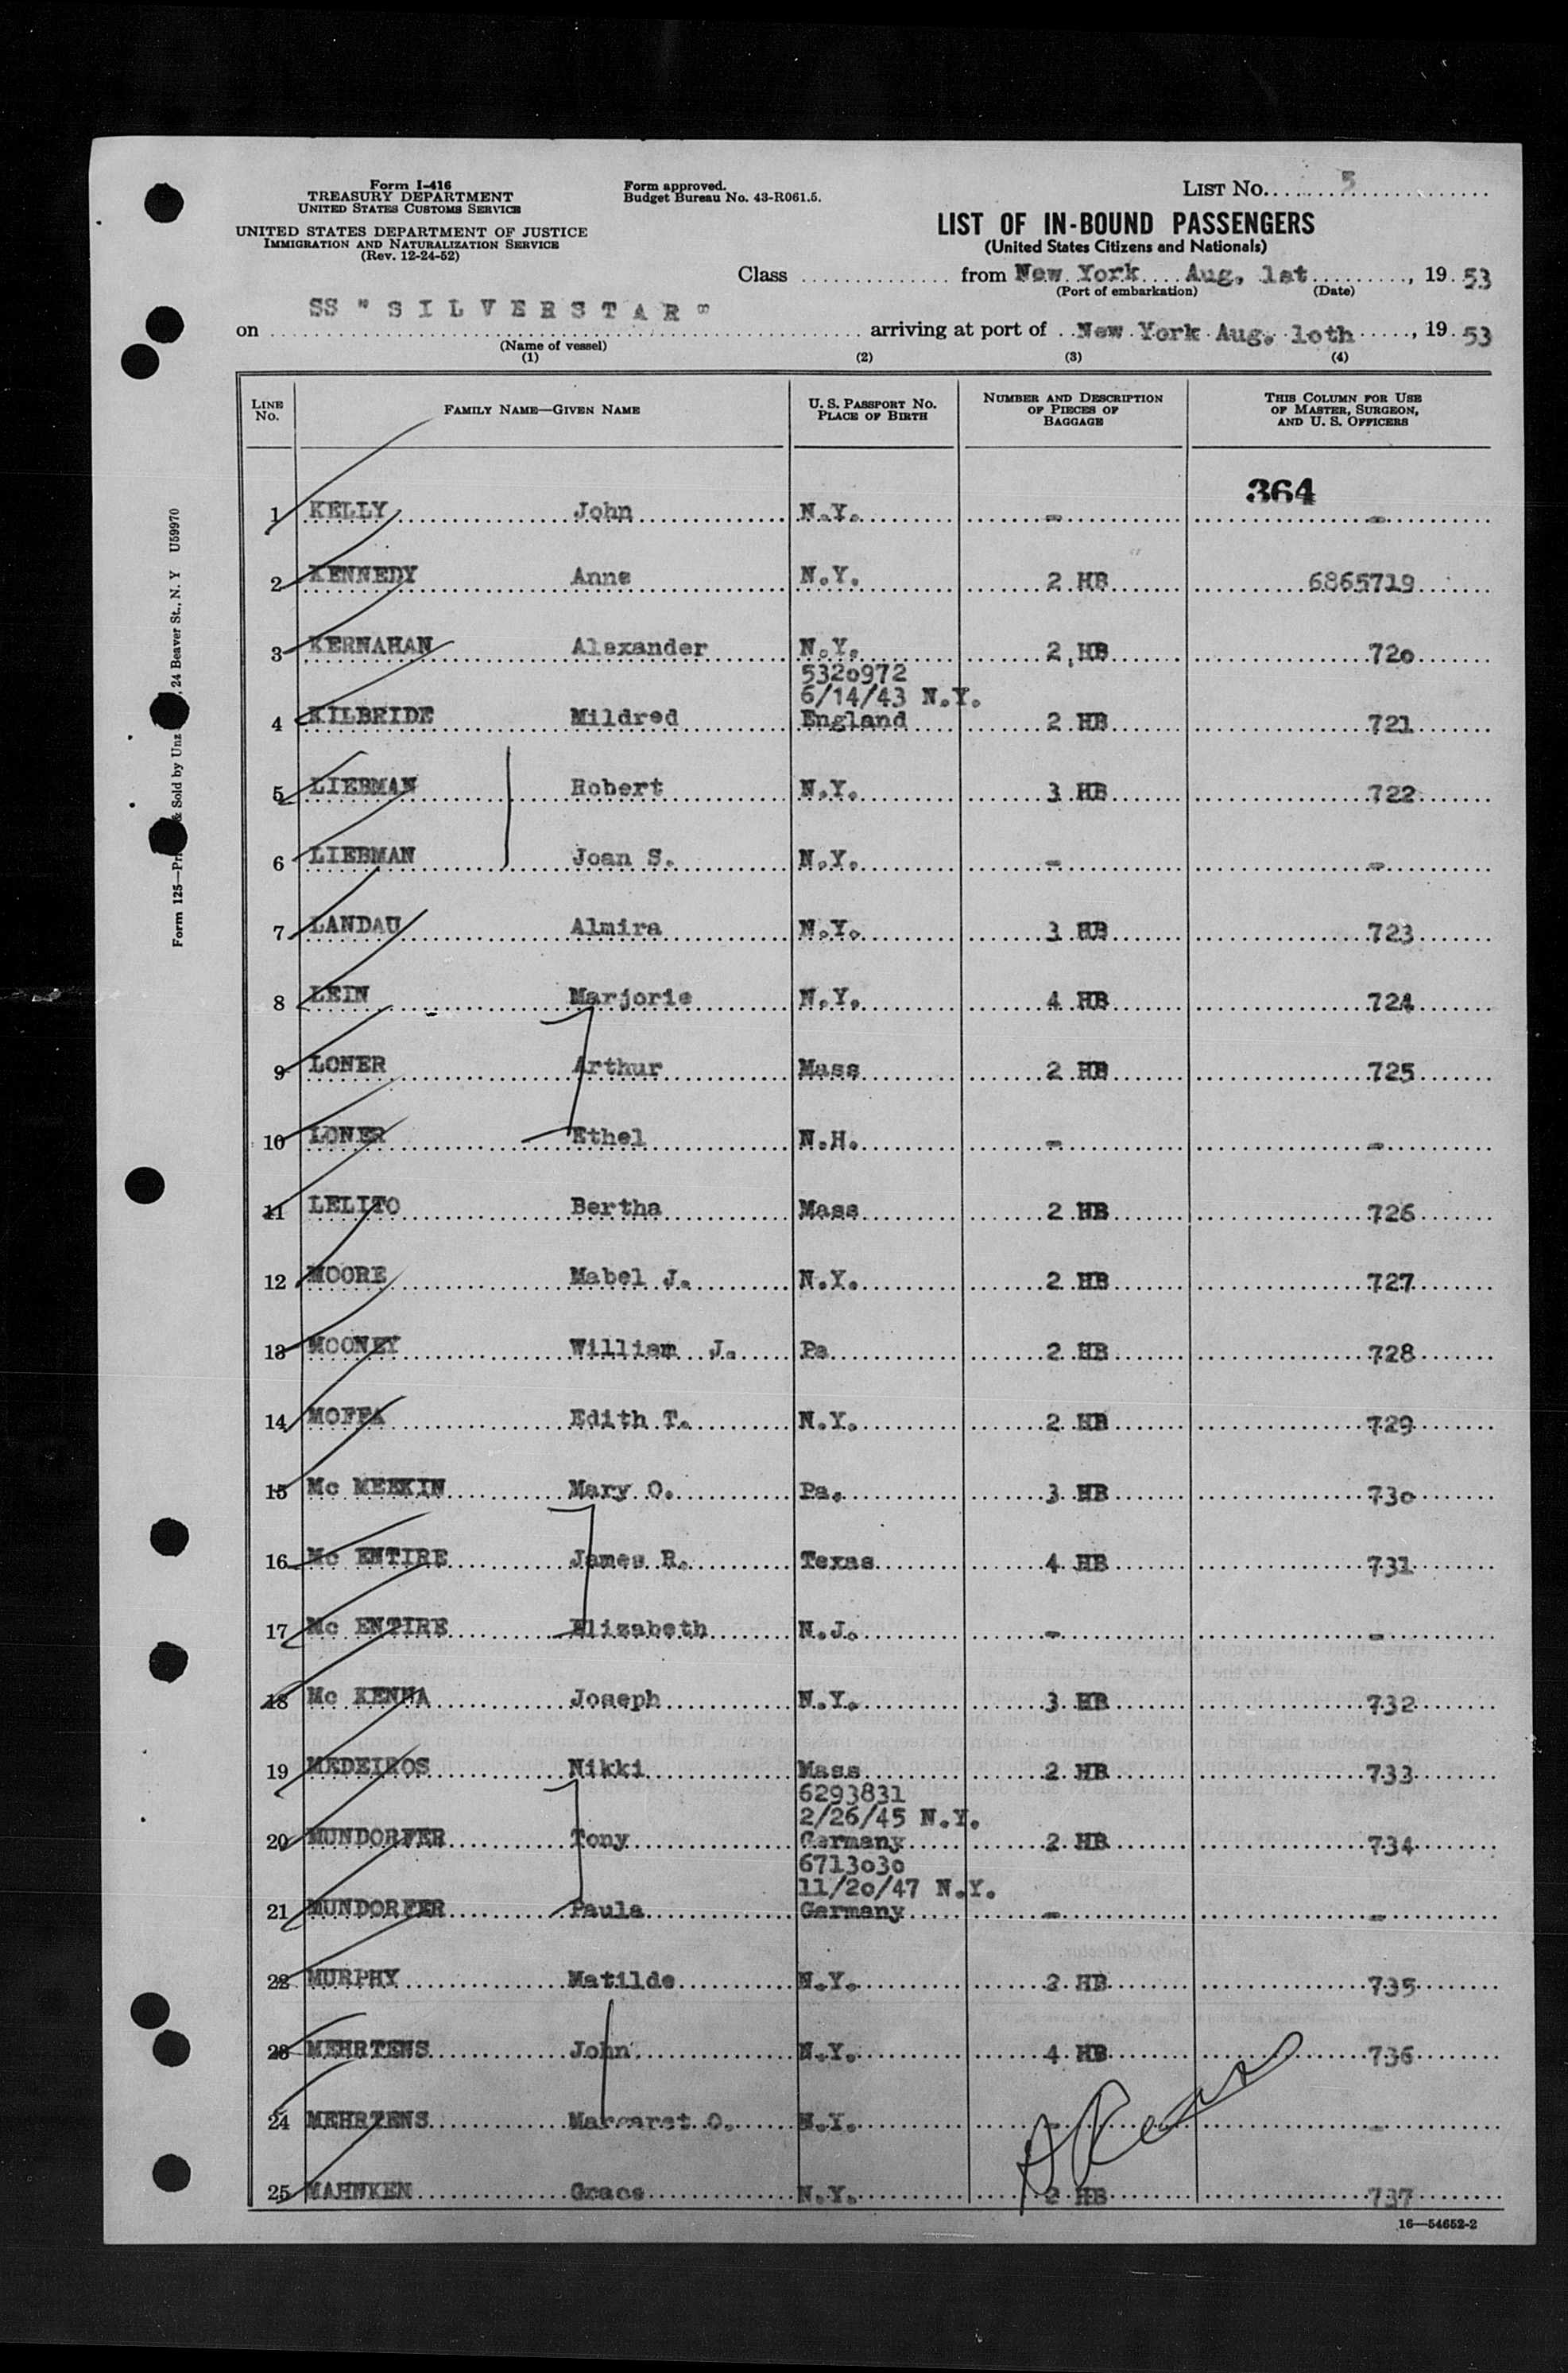 Form I-416
TREASURY DEPARTMENT
UNITED STATES CUSTOMS SERVICE
UNITED STATES DEPARTMENT OF JUSTICE
IMMIGRATION AND NATURALIZATION SERVICE
(Rev. 12-24-52)
Form approved.
Budget Bureau No. 43-R061.5.
LIST No. 5
LIST OF IN-BOUND PASSENGERS
(United States Citizens and Nationals)
Class from New York Aug. 1st, 19 53
(Port of embarkation) (Date)
on SS "SILVERSTAR" arriving at port of New York Aug. 1oth, 19 53
(Name of vessel)
(1) (2) (3) (4)
LINE No. FAMILY NAME—GIVEN NAME U. S. PASSPORT NO. PLACE OF BIRTH NUMBER AND DESCRIPTION OF PIECES OF BAGGAGE THIS COLUMN FOR USE OF MASTER, SURGEON, AND U. S. OFFICERS
364
1 KELLY John N.Y. - -
2 KENNEDY Anne N.Y. 2 HB 6865719
3 KERNAHAN Alexander N.Y. 2 HB 72o
532o972
6/14/43 N.Y.
4 KILBRIDE Mildred England 2 HB 721
5 LIEBMAN Robert N.Y. 3 HB 722
6 LIEBMAN Joan S. N.Y. - -
7 LANDAU Almira N.Y. 3 HB 723
8 LEIN Marjorie N.Y. 4 HB 724
9 LONER Arthur Mass 2 HB 725
10 LONER Ethel N.H. - -
11 LELITO Bertha Mass 2 HB 726
12 MOORE Mabel J. N.Y. 2 HB 727
13 MOONEY William J. Pa 2 HB 728
14 MOFFA Edith T. N.Y. 2 HB 729
15 Mc MEEKIN Mary O. Pa. 3 HB 73o
16 Mc ENTIRE James R. Texas 4 HB 731
17 Mc ENTIRE Elizabeth N.J. - -
18 Mc KENNA Joseph N.Y. 3 HB 732
19 MEDEIROS Nikki Mass 2 HB 733
6293831
2/26/45 N.Y.
20 MUNDORFER Tony Germany 2 HB 734
6713o3o
11/2o/47 N.Y.
21 MUNDORFER Paula Germany - -
22 MURPHY Matilde N.Y. 2 HB 735
23 MEHRTENS John N.Y. 4 HB 736
24 MEHRTENS Margaret O. N.Y. - -
25 MAHNKEN Grace N.Y. 2 HB 737
16—54652-2
Form 125—Pri & Sold by Unz , 24 Beaver St., N. Y U59970